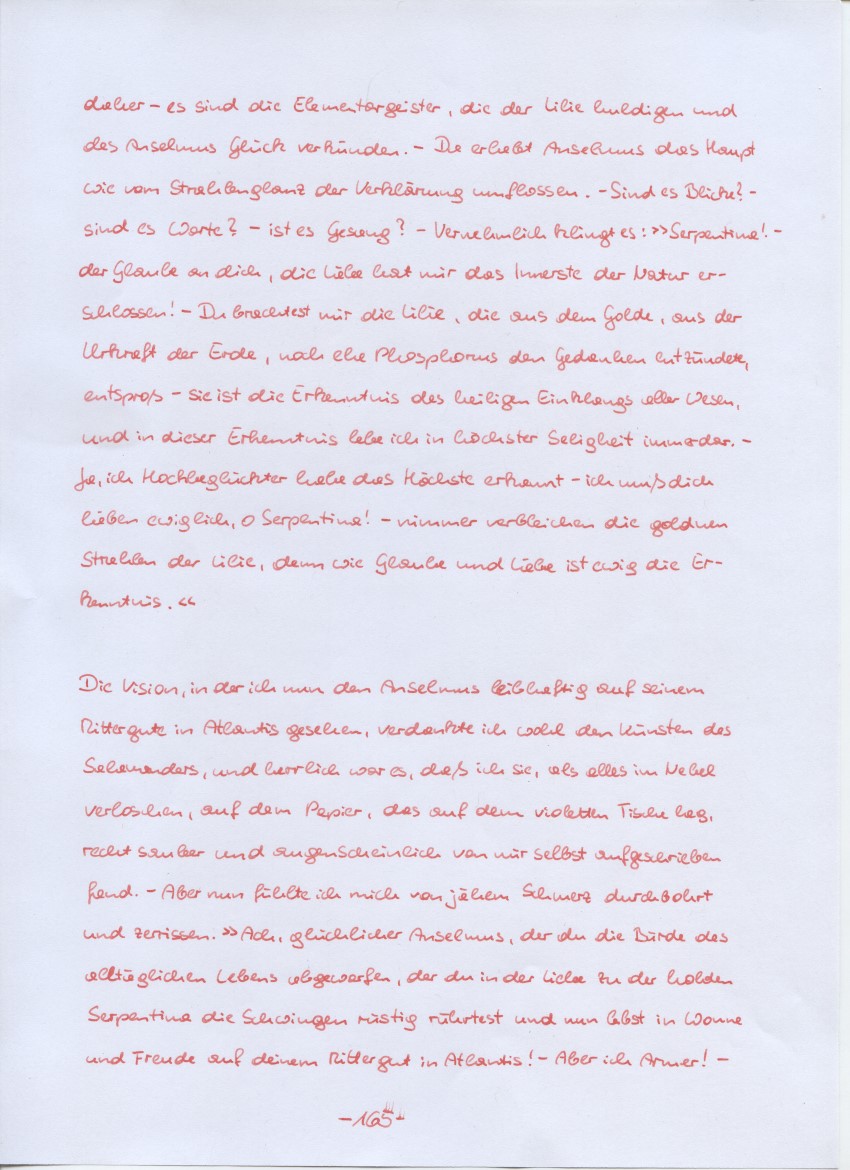 daher – es sind die Elementargeister, die der Lilie huldigen und
des Anselmus Glück verkünden. – Da erhebt Anselmus das Haupt
wie vom Strahlenglanz der Verklärung umflossen. – Sind es Blicke? –
sind es Worte? – ist es Gesang? – Vernehmlich klingt es: »Serpentina! –
der Glaube an dich, die Liebe hat mir das Innerste der Natur er-
schlossen! – Du brachtest mir die Lilie, die aus dem Golde, aus der
Urkraft der Erde, noch ehe Phosphorus den Gedanken entzündete,
entsproß – sie ist die Erkenntnis des heiligen Einklangs aller Wesen,
und in dieser Erkenntnis lebe ich in höchster Seligkeit immerdar. –
Ja, ich Hochbeglückter habe das Höchste erkannt – ich muß dich
lieben ewiglich, o Serpentina! – nimmer verbleichen die goldnen
Strahlen der Lilie, denn wie Glaube und Liebe ist ewig die Er-
kenntnis.«
Die Vision, in der ich nun den Anselmus leibhaftig auf seinem
Rittergute in Atlantis gesehen, verdankte ich wohl den Künsten des
Salamanders, und herrlich war es, daß ich sie, als alles im Nebel
verloschen, auf dem Papier, das auf dem violetten Tische lag,
recht sauber und augenscheinlich von mir selbst aufgeschrieben
fand. – Aber nun fühlte ich mich von jähem Schmerz durchbohrt
und zerrissen. »Ach, glücklicher Anselmus, der du die Bürde des
alltäglichen Lebens abgeworfen, der du in der Liebe zu der holden
Serpentina die Schwingen rüstig rührtest und nun lebst in Wonne
und Freude auf deinem Rittergut in Atlantis! – Aber ich Armer! –
–165–